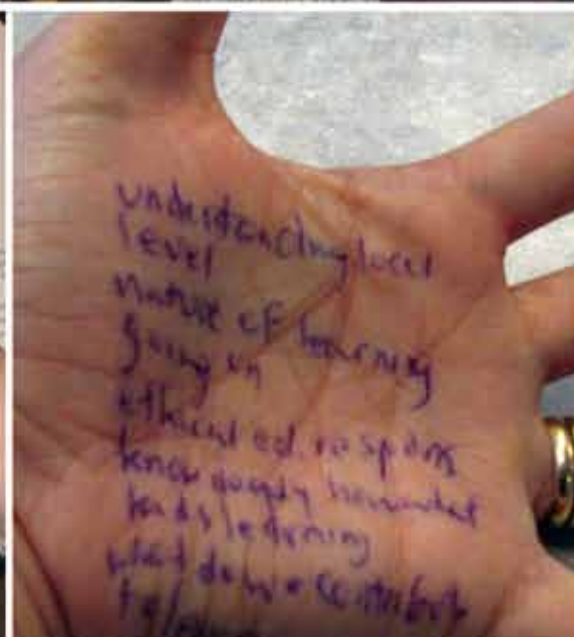 understanding local
level
nature of learning
going on
ethical ed. respons
know deeply how what
kids learning
what do we contribute
to